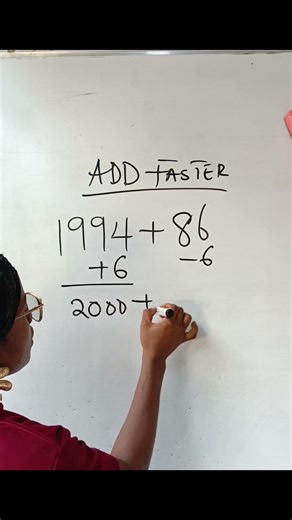 ADD FASTER
1994 + 86
+6 -6
2000 +